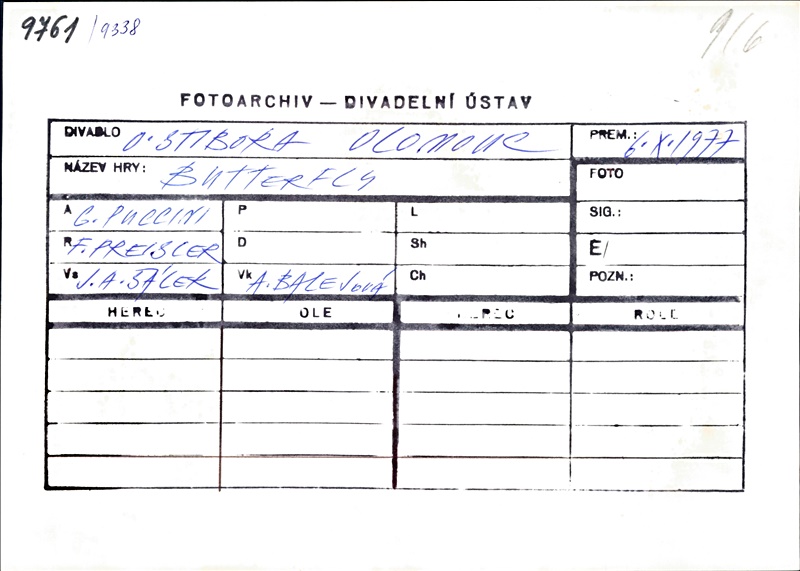 9761 /9338
9/6
FOTOARCHIV — DIVADELNÍ ÚSTAV
DIVADLO O. STIBORA OLOMOUC PREM.: 6.X.1977
NÁZEV HRY: BUTTERFLY FOTO
A G. PUCCINI P L SIG.:
R F. PREISLER D Sh É/
Vs J.A. ŠÁLEK Vk A. BALEJOVÁ Ch POZN.:
HEREC OLE EREC ROLE